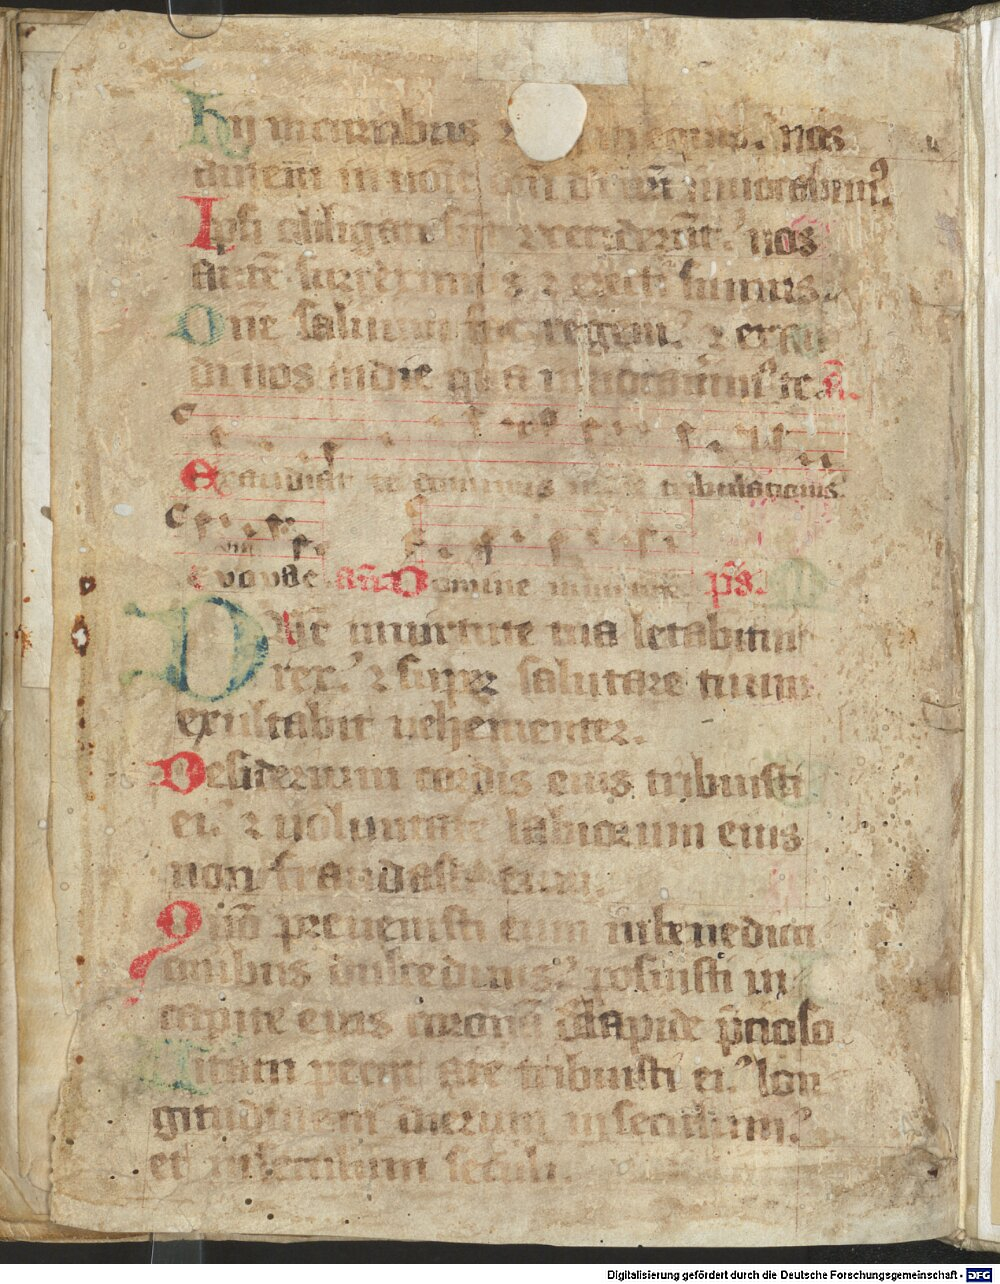 hij in curribus & hij in equis. nos
autem in noīe dn̄i dei nr̄i inuocabim⁹.
Ipsi obligati sunt & ceciderūt. nos
autē surreximus & erecti sumus.
Dn̄e saluum fac regem. & exau
di nos in die qua inuocauerim⁹ te. an̄.
Exaudiat te dominus in die tribulacionis.
Euouae. an̄ Domine in uirtute ps̄.
Dn̄e in uirtute tua letabitur
rex. & super salutare tuum
exultabit uehementer.
Desiderium cordis eius tribuisti
ei. & uoluntate labiorum eius
non fraudasti eum.
Qm̄ preuenisti eum in benedicti
onibus dulcedinis. posuisti in
capite eius coronā de lapide p̄cioso
Uitam peciit a te tribuisti ei. lon
gitudinem dierum in seculum.
et in seculum seculi.
Digitalisierung gefördert durch die Deutsche Forschungsgemeinschaft - DFG